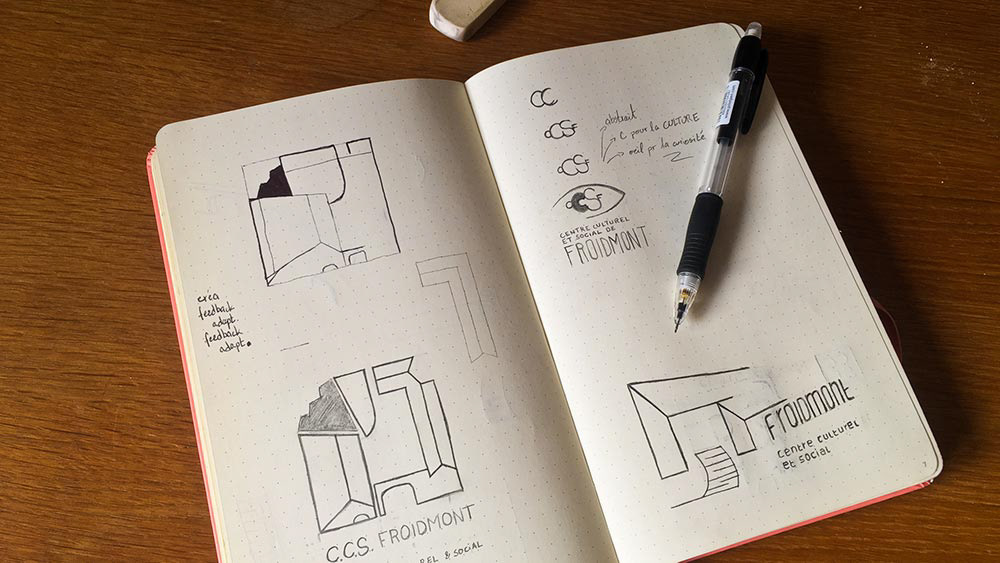 créa
feedback
adapt.
feedback
adapt.
C.C.S. FROIDMONT
REL & SOCIAL
CC
CCSF
CCSF
abstrait
C pour la CULTURE
œil pr la curiosité
CCSF
CENTRE CULTUREL
ET SOCIAL DE
FROIDMONT
FROIDMONT
centre culturel
et social